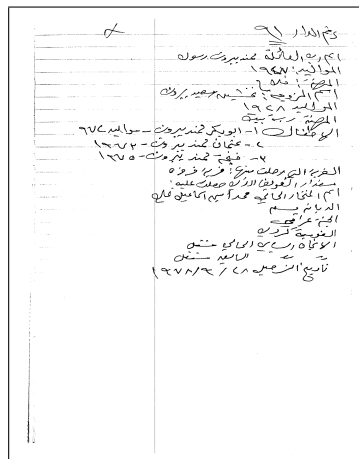 رقم الدار ٩١
اسم رب العائلة حمد بيروت رسول
المواليد: ١٩٤٧
المهنة: فلاح
اسم الزوجة: سعيد بيروت
المواليد ١٩٤٨
المهنة ربة بيت
الاطفال ١- ابوبكر حمد بيروت - مواليد ٩٧٢
٢- عثمان حمد بيروت - ١٩٧٣
٣- حمد بيروت - ١٩٧٥
القرية التي رحلت منها: قرية
مقدار التعويض الذي حصلت عليه:
اسم المختار الحالي محمد امين اسماعيل
الديانة مسلم
الجنسية عراقي
القومية كردي
الاتجاه السياسي الحالي مستقل
السابق مستقل
تاريخ الترحيل ٢٨/ /١٩٧٨